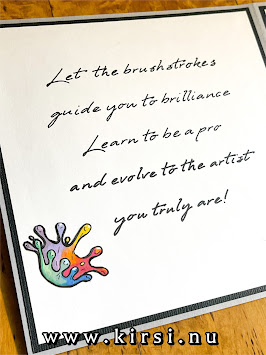 Let the brushstrokes
guide you to brilliance
Learn to be a pro
and evolve to the artist
you truly are!
www.kirsi.nu